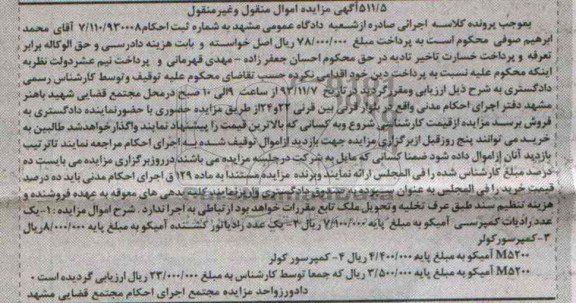 ۵۱۱/۵آگهی مزایده اموال منقول وغیرمنقول
بموجب پرونده کلاسه اجرائی صادره ازشعبه دادگاه عمومی مشهد به شماره ثبت احکام۷/۱۱۰/۹۳۰۰۰۸ آقای محمد
ابرهیم صوفی محکوم است به پرداخت مبلغ ۷۸/۰۰۰/۰۰۰ ریال اصل خواسته و بابت هزینه دادرسی و حق الوکاله برابر
تعرفه و پرداخت خسارت تاخیر تادیه در حق محکوم احسان جعفر زاده - مهدی قهرمانی و پرداخت نیم عشردولت نظربه
اینکه محکوم علیه نسبت به پرداخت دین خود اقدامی نکرده حسب تقاضای محکوم علیه توقیف وتوسط کارشناس رسمی
دادگستری به شرح ذیل ارزیابی ومقررگردید در تاریخ ۹۳/۱۱/۷ از ساعت ۹الی ۱۰ صبح درمحل مجتمع قضایی شهید باهنر
مشهد دفتر اجرای احکام مدنی واقع در بلوار قرنی بین قرنی ۲۲و۲۴از طریق مزایده حضوری با حضورنماینده دادگستری به
فروش برسد مزایده ازقیمت کارشناسی شروع وبه کسانی که بالاترین قیمت را پیشنهاد نمایند واگذارخواهدشد طالبین به
خرید می توانند پنج روزقبل ازبرگزاری مزایده جهت بازدید ازاموال توقیف شده به اجرای احکام مراجعه نمایند تاترتیب
بازدید آنان ازاموال داده شود ضمنا کسانی که مایل به شرکت درجلسه مزایده می باشند درروزبرگزاری مزایده می بایست ده
درصد مبلغ کارشناس شده را فی المجلس ارائه نمایند وبرنده مزایده مستندا به ماده ۱۲۹ ق اجرای احکام مدنی باید ده درصد
قیمت خرید را فی المجلس به عنوان سپرده به صندوق دادگستری واریزنمایند کلیه بدهی های معوقه به عهده فروشنده و
هزینه تنظیم سند طبق عرف تخلیه وتحویل ملک تابع مقررات خواهد بود ارتباطی به اجرا ندارد . شرح اموال مزایده : ۱-یک
عدد رادیات کمپرسی آمیکو به مبلغ پایه ۷/۱۰۰/۰۰۰ ریال ۲- یک عدد رادیاتور کشنده آمیکو به مبلغ پایه ۸/۰۰۰/۰۰۰ریال
۳-کمپرسور کولر
M۵۲۰۰ آمیکو به مبلغ پایه ۴/۴۰۰/۰۰۰ ریال ۴- کمپرسور کولر
M۵۲۰۰ آمیکو به مبلغ پایه ۳/۵۰۰/۰۰۰ ریال که جمعا توسط کارشناس به مبلغ ۲۳/۰۰۰/۰۰۰ ریال ارزیابی گردیده است .
دادورزواحد مزایده مجتمع اجرای احکام مجتمع قضایی مشهد